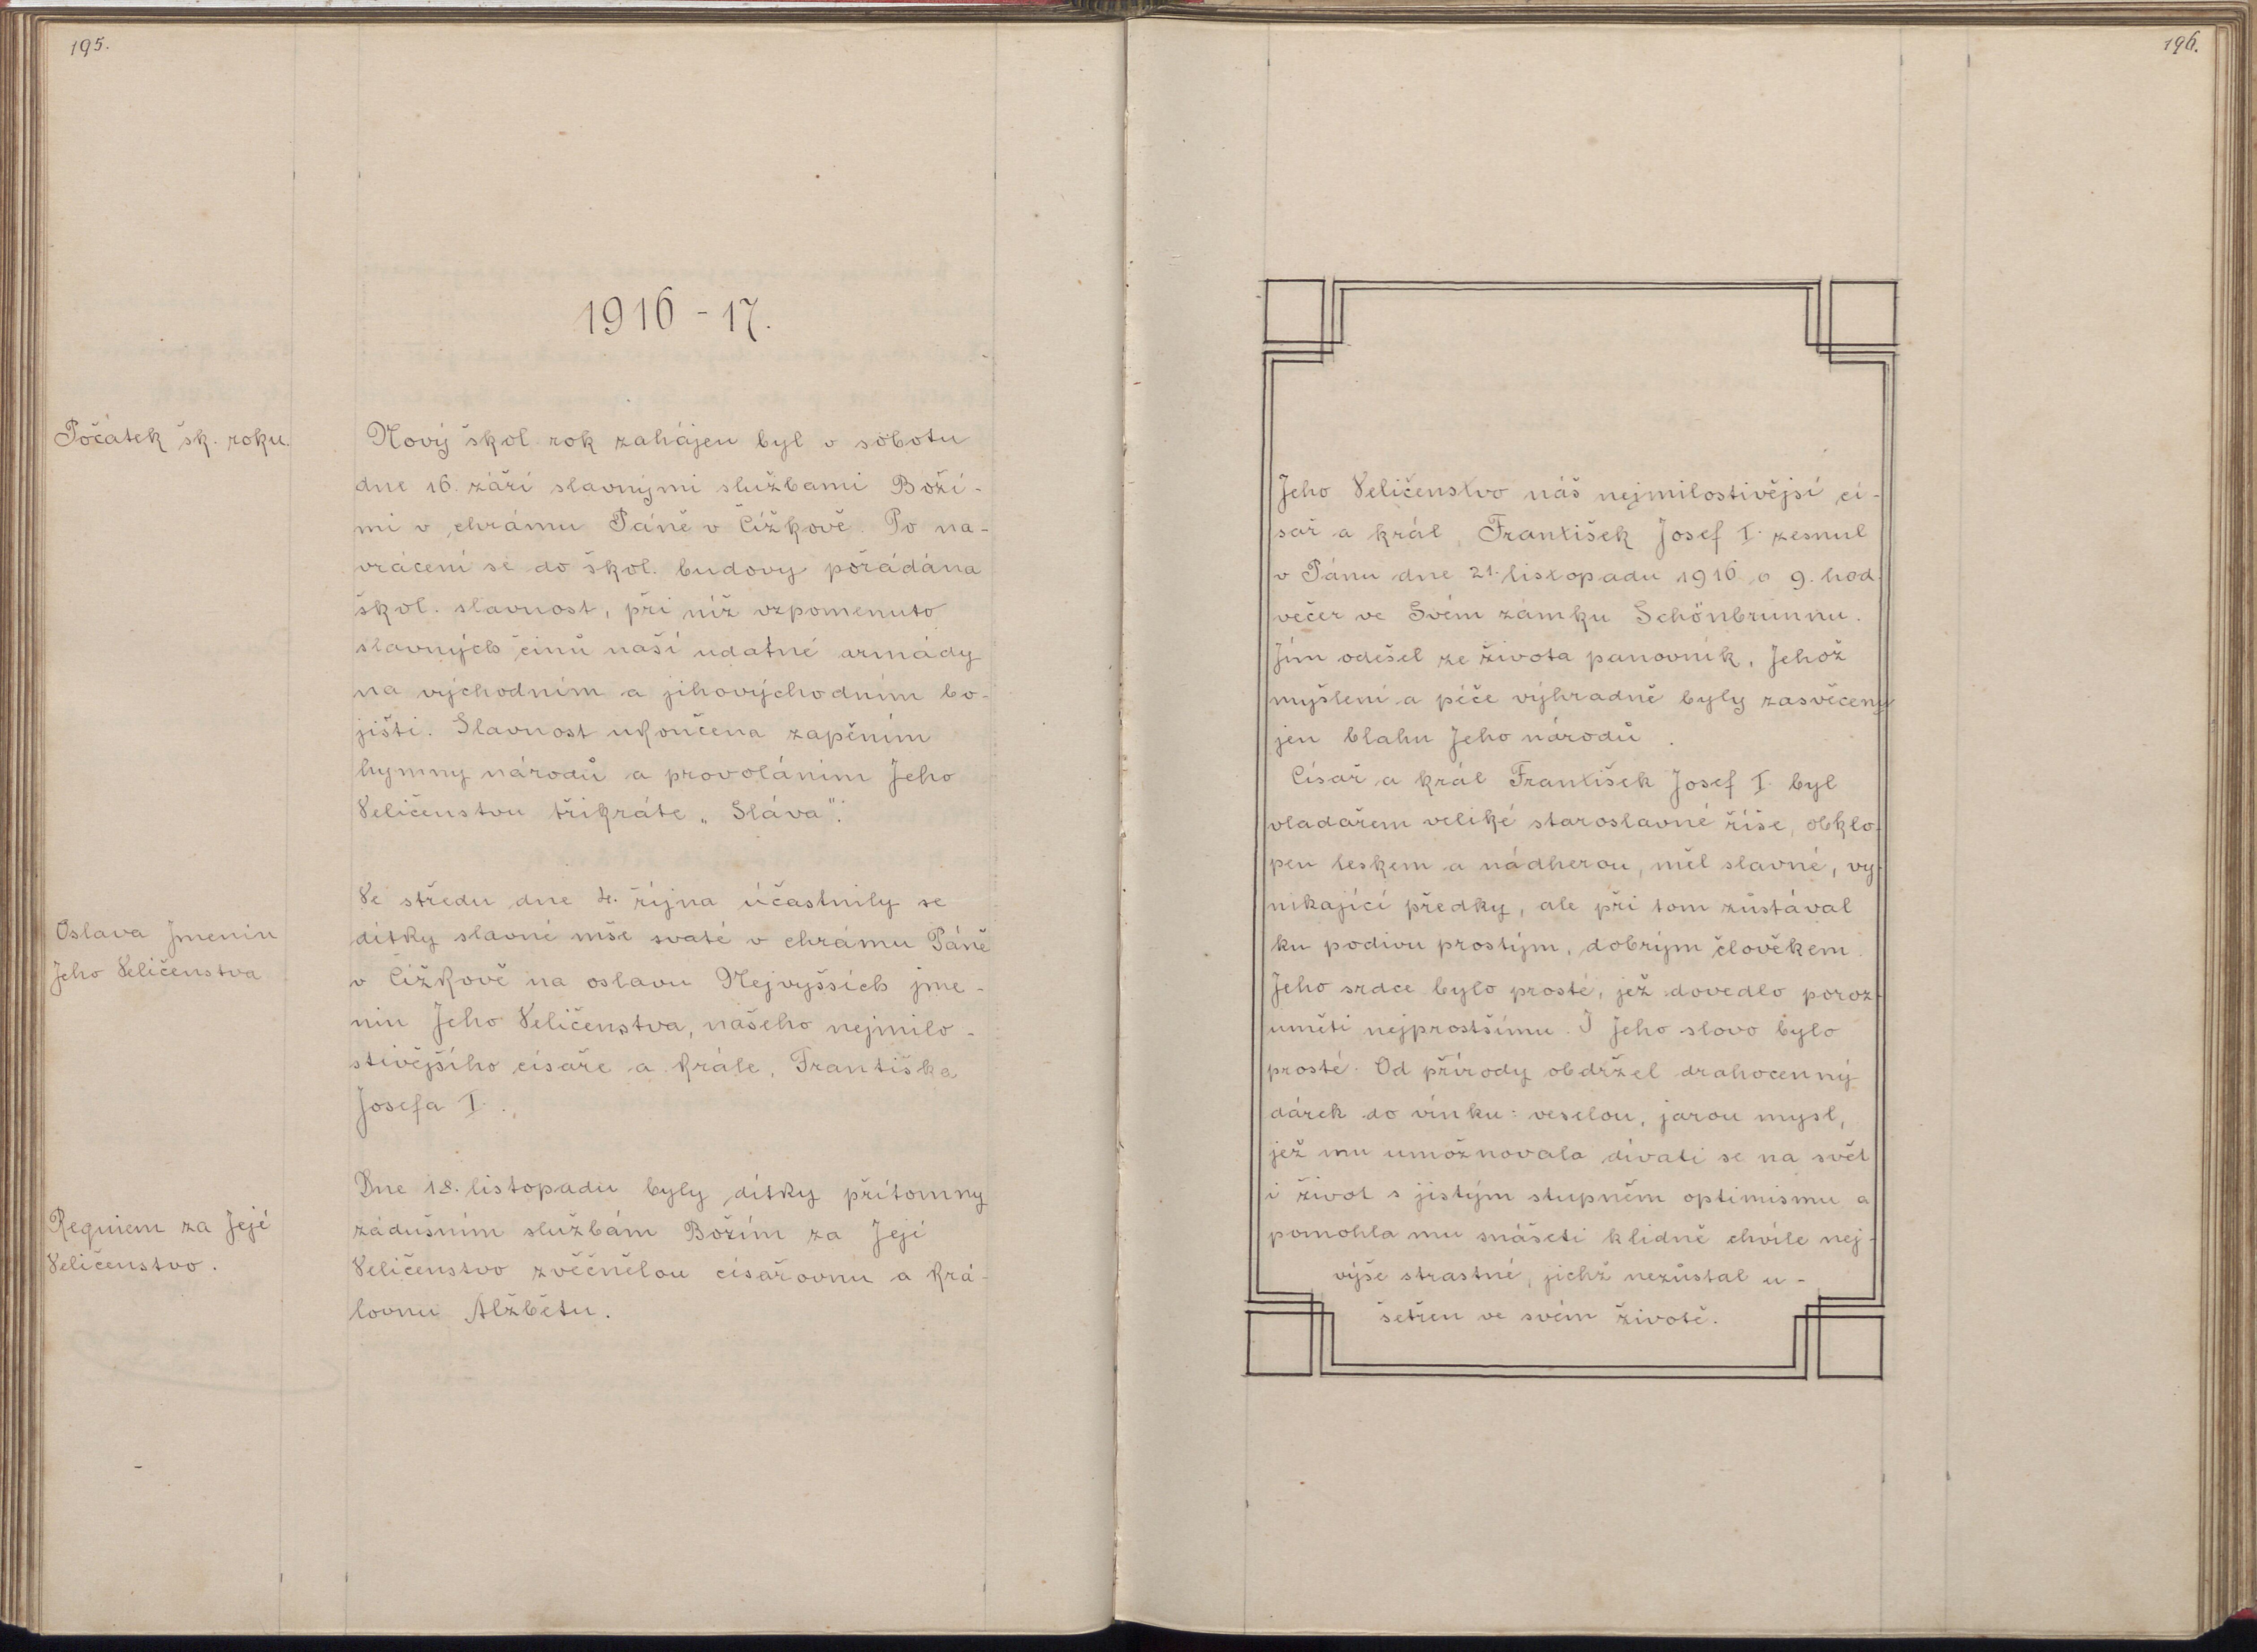 195.
1916 - 17.
Počátek šk. roku.
Nový škol rok zahájen byl v sobotu
dne 16. září slavnými službami Boží-
mi v chrámu Páně v Čížkově. Po na-
vrácení se do škol. budovy pořádána
škol. slavnost, při níž vzpomenuto
slavných činů naší udatné armády
na východním a jihovýchodním bo-
jišti. Slavnost ukončena zapěním
hymny národů a provoláním Jeho
Veličenstvu třikráte „Sláva".
Oslava Jmenin
Jeho Veličenstva
Ve středu dne 4. října účastnily se
dítky slavné mše svaté v chrámu Páně
v Čížkově na oslavu Nejvyšších jme-
nin Jeho Veličenstva, našeho nejmilo-
stivějšího císaře a krále, Františka
Josefa I.
Requiem za Její
Veličenstvo.
Dne 18. listopadu byly dítky přítomny
zádušním službám Božím za Její
Veličenstvo zvěčnělou císařovnu a krá-
lovnu Alžbětu.
196.
Jeho Veličenstvo náš nejmilostivější cí-
sař a král, František Josef I. zesnul
v Pánu dne 21. listopadu 1916 o 9. hod.
večer ve Svém zámku Schönbrunnu.
Jím odešel ze života panovník, Jehož
myšlení a péče výhradně byly zasvěceny
jen blahu Jeho národů.
Císař a král František Josef I. byl
vladařem veliké staroslavné říše, obklo-
pen leskem a nádherou, měl slavné, vy-
nikající předky, ale při tom zůstával
ku podivu prostým, dobrým člověkem.
Jeho srdce bylo prosté, jež dovedlo poroz-
uměti nejprostšímu. I Jeho slovo bylo
prosté. Od přírody obdržel drahocenný
dárek do vínku: veselou, jarou mysl,
jež mu umožnovala dívati se na svět
i život s jistým stupněm optimismu a
pomohla mu snášeti klidně chvíle nej-
výše strastné, jichž nezůstal u-
šetřen ve svém životě.